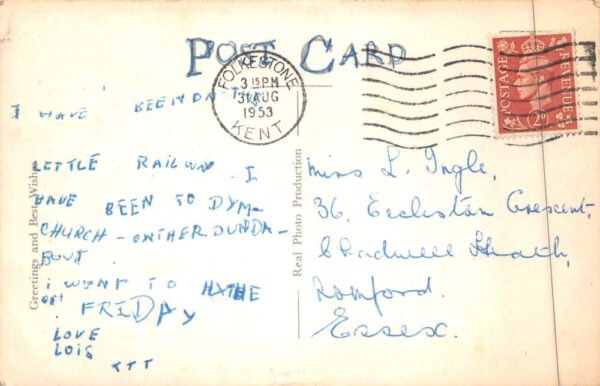 POST CARD
FOLKESTONE
3 15 PM
31 AUG
1953
KENT
POSTAGE
REVENUE
2D
I HAVE BEEN ON THE
LITTLE RAILWAY I
HAVE BEEN TO DYM-
CHURCH - ON THE ROUNDA-
BOUT.
I WENT TO HYTHE
ON FRIDAY
LOVE
LOIS
Greetings and Best Wishes
Real Photo Production
Miss L. Ingle,
36, Eccleston Crescent,
Chadwell Heath,
Romford.
Essex.